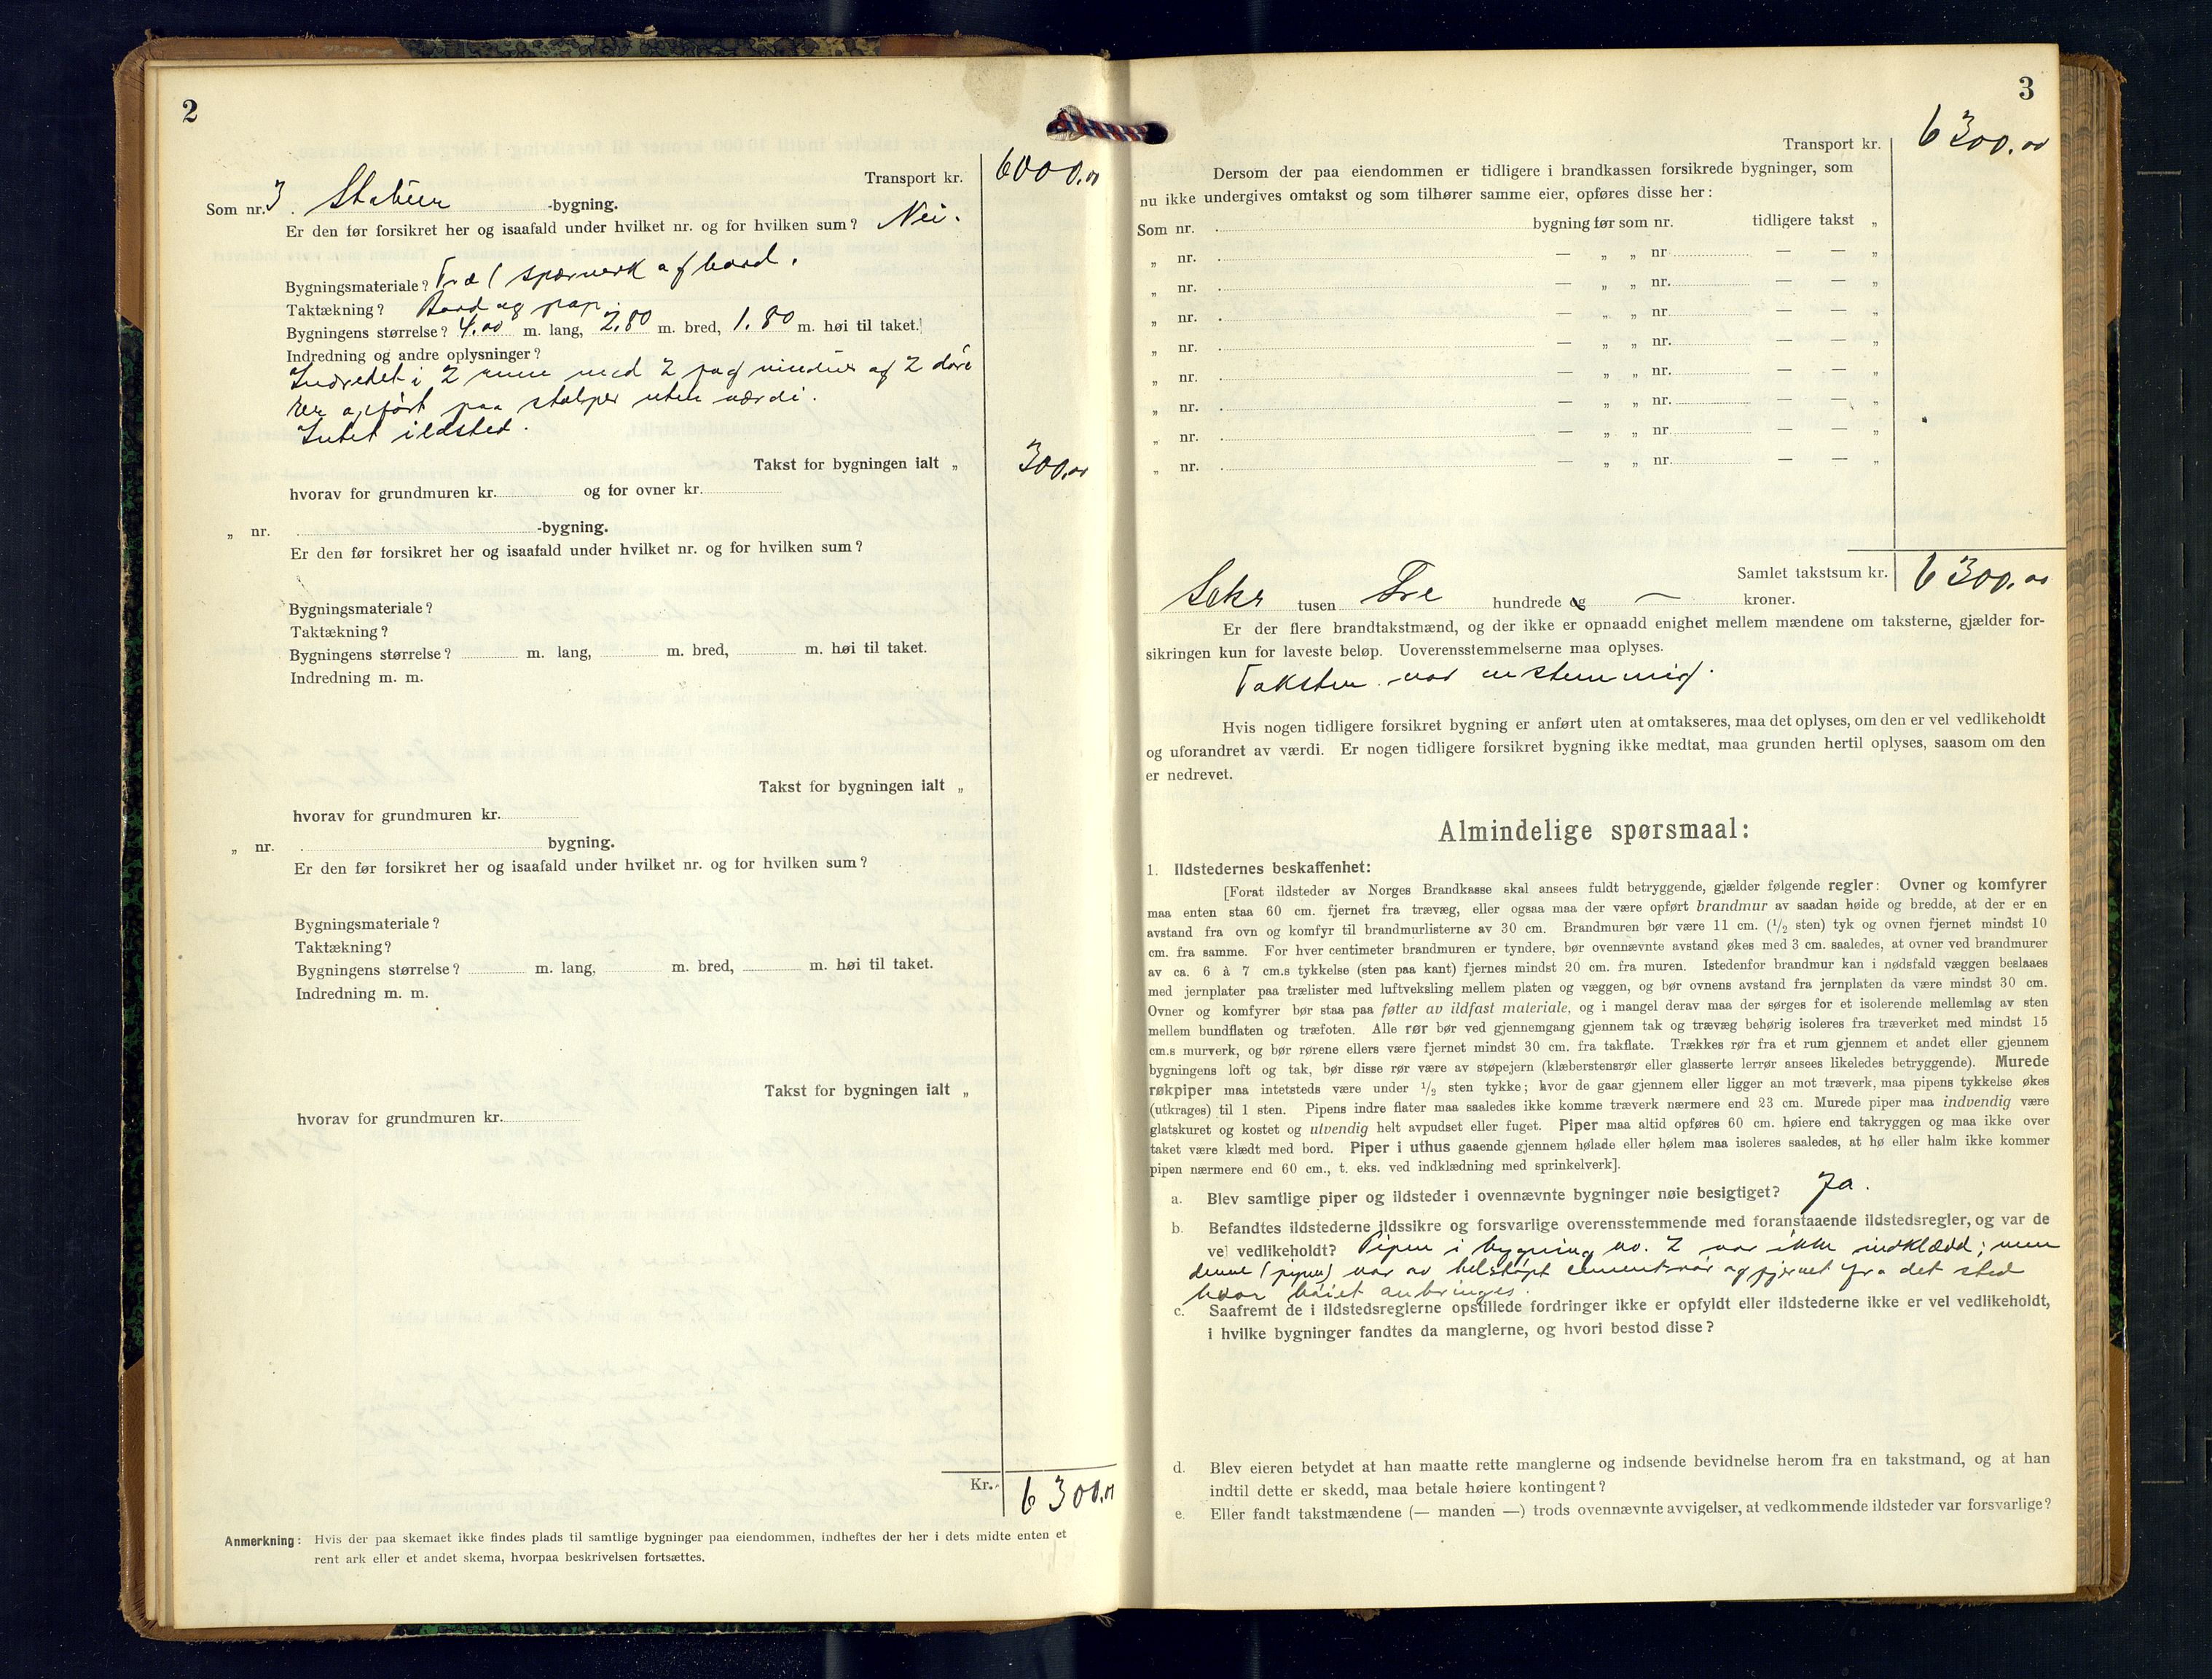 2
Transport kr. 6000.00
Som nr. 3. Stabur -bygning.
Er den før forsikret her og isaafald under hvilket nr. og for hvilken sum? Nei.
Bygningsmateriale? Træ ( spærverk af bord.
Taktækning? Bord og pap.
Bygningens størrelse? 4.00 m. lang, 2.80 m. bred, 1.80 m. høi til taket.
Indredning og andre oplysninger?
Indredet i 2 rum med 2 fag vinduer og 2 døre
opført paa stolper uten værdi.
Intet ildsted.
Takst for bygningen ialt „ 300.00
hvorav for grundmuren kr. og for ovner kr.
„ nr. -bygning.
Er den før forsikret her og isaafald under hvilket nr. og for hvilken sum?
Bygningsmateriale?
Taktækning?
Bygningens størrelse? m. lang, m. bred, m. høi til taket.
Indredning m. m.
Takst for bygningen ialt „
hvorav for grundmuren kr.
„ nr. bygning.
Er den før forsikret her og isaafald under hvilket nr. og for hvilken sum?
Bygningsmateriale?
Taktækning?
Bygningens størrelse? m. lang, m. bred, m. høi til taket.
Indredning m. m.
Takst for bygningen ialt „
hvorav for grundmuren kr.
Kr. 6300.00
Anmerkning: Hvis der paa skemaet ikke findes plads til samtlige bygninger paa eiendommen, indheftes der her i dets midte enten et
rent ark eller et andet skema, hvorpaa beskrivelsen fortsættes.
3
Transport kr. 6300.00
Dersom der paa eiendommen er tidligere i brandkassen forsikrede bygninger, som
nu ikke undergives omtakst og som tilhører samme eier, opføres disse her:
Som nr. bygning før som nr. tidligere takst „
„ nr. — „ „ nr. — — „
„ nr. — „ „ nr. — — „
„ nr. — „ „ nr. — — „
„ nr. — „ „ nr. — — „
„ nr. — „ „ nr. — — „
„ nr. — „ „ nr. — — „
„ nr. — „ „ nr. — — „
„ nr. — „ „ nr. — — „
Samlet takstsum kr. 6300.00
Seks tusen Tre hundrede og — kroner.
Er der flere brandtakstmænd, og der ikke er opnaadd enighet mellem mændene om taksterne, gjælder for-
sikringen kun for laveste beløp. Uoverensstemmelserne maa oplyses.
Taksten var enstemmig.
Hvis nogen tidligere forsikret bygning er anført uten at omtakseres, maa det oplyses, om den er vel vedlikeholdt
og uforandret av værdi. Er nogen tidligere forsikret bygning ikke medtat, maa grunden hertil oplyses, saasom om den
er nedrevet.
Almindelige spørsmaal:
1. Ildstedernes beskaffenhet:
[Forat ildsteder av Norges Brandkasse skal ansees fuldt betryggende, gjælder følgende regler: Ovner og komfyrer
maa enten staa 60 cm. fjernet fra trævæg, eller ogsaa maa der være opført brandmur av saadan høide og bredde, at der er en
avstand fra ovn og komfyr til brandmurlisterne av 30 cm. Brandmuren bør være 11 cm. (1/2 sten) tyk og ovnen fjernet mindst 10
cm. fra samme. For hver centimeter brandmuren er tyndere, bør ovennævnte avstand økes med 3 cm. saaledes, at ovner ved brandmurer
av ca. 6 à 7 cm.s tykkelse (sten paa kant) fjernes mindst 20 cm. fra muren. Istedenfor brandmur kan i nødsfald væggen beslaaes
med jernplater paa trælister med luftveksling mellem platen og væggen, og bør ovnens avstand fra jernplaten da være mindst 30 cm.
Ovner og komfyrer bør staa paa føtter av ildfast materiale, og i mangel derav maa der sørges for et isolerende mellemlag av sten
mellem bundflaten og træfoten. Alle rør bør ved gjennemgang gjennem tak og trævæg behørig isoleres fra træverket med mindst 15
cm.s murverk, og bør rørene ellers være fjernet mindst 30 cm. fra takflate. Trækkes rør fra et rum gjennem et andet eller gjennem
bygningens loft og tak, bør disse rør være av støpejern (klæberstensrør eller glasserte lerrør ansees likeledes betryggende). Murede
røkpiper maa intetsteds være under 1/2 sten tykke; hvor de gaar gjennem eller ligger an mot træverk, maa pipens tykkelse økes
(utkrages) til 1 sten. Pipens indre flater maa saaledes ikke komme træverk nærmere end 23 cm. Murede piper maa indvendig være
glatskuret og kostet og utvendig helt avpudset eller fuget. Piper maa altid opføres 60 cm. høiere end takryggen og maa ikke over
taket være klædt med bord. Piper i uthus gaaende gjennem hølade eller hølem maa isoleres saaledes, at hø eller halm ikke kommer
pipen nærmere end 60 cm., t. eks. ved indklædning med sprinkelverk].
a. Blev samtlige piper og ildsteder i ovennævnte bygninger nøie besigtiget? Ja.
b. Befandtes ildstederne ildssikre og forsvarlige overensstemmende med foranstaaende ildstedsregler, og var de
vel vedlikeholdt? Pipen i bygning no. 2 var ikke indklædd; men
denne (pipen) var av helstøpt cementrør og fjernet fra det sted
hvor høiet anbringes.
c. Saafremt de i ildstedsreglerne opstillede fordringer ikke er opfyldt eller ildstederne ikke er vel vedlikeholdt,
i hvilke bygninger fandtes da manglerne, og hvori bestod disse?
d. Blev eieren betydet at han maatte rette manglerne og indsende bevidnelse herom fra en takstmand, og at han
indtil dette er skedd, maa betale høiere kontingent?
e. Eller fandt takstmændene (— manden —) trods ovennævnte avvigelser, at vedkommende ildsteder var forsvarlige?